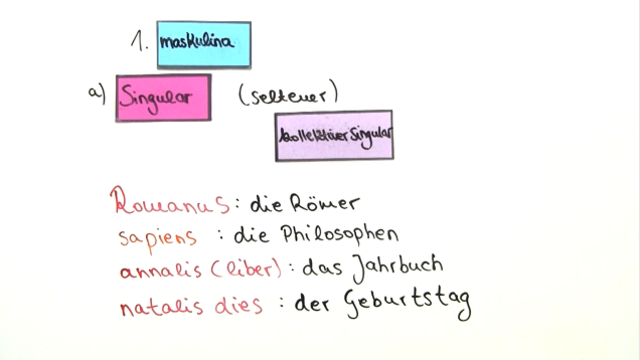 1. maskulina
a) Singular (seltener)
kollektiver Singular
Romanus: die Römer
sapiens : die Philosophen
annalis (liber) : das Jahrbuch
natalis dies : der Geburtstag